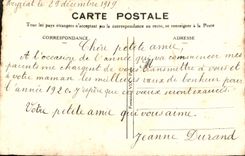 le 29 décembre 1919
CARTE POSTALE
Tous les pays étrangers n'acceptent pas la correspondance au recto, se renseigner à la Poste
CORRESPONDANCE
ADRESSE
Chère petite amie
A l'occasion de l'année qui va commencer mes
parents me chargent de vous transmettre à vous et
à votre maman les meilleurs vœux de bonheur pour
l'année 1920 j'espère que ça vaux
Votre petite amie qui vous aime
Jeanne Durand